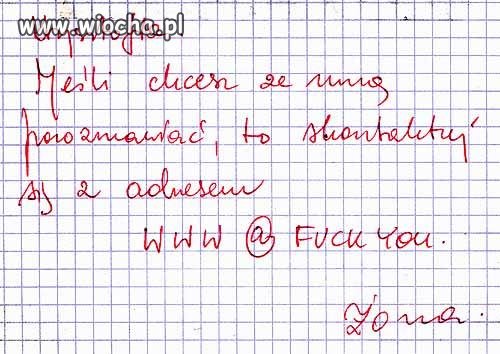 www.wiocha.pl
Jeśli chcesz ze mną
porozmawiać, to skontaktuj
się z adresem
WWW @ FUCK YOU.
Żona.